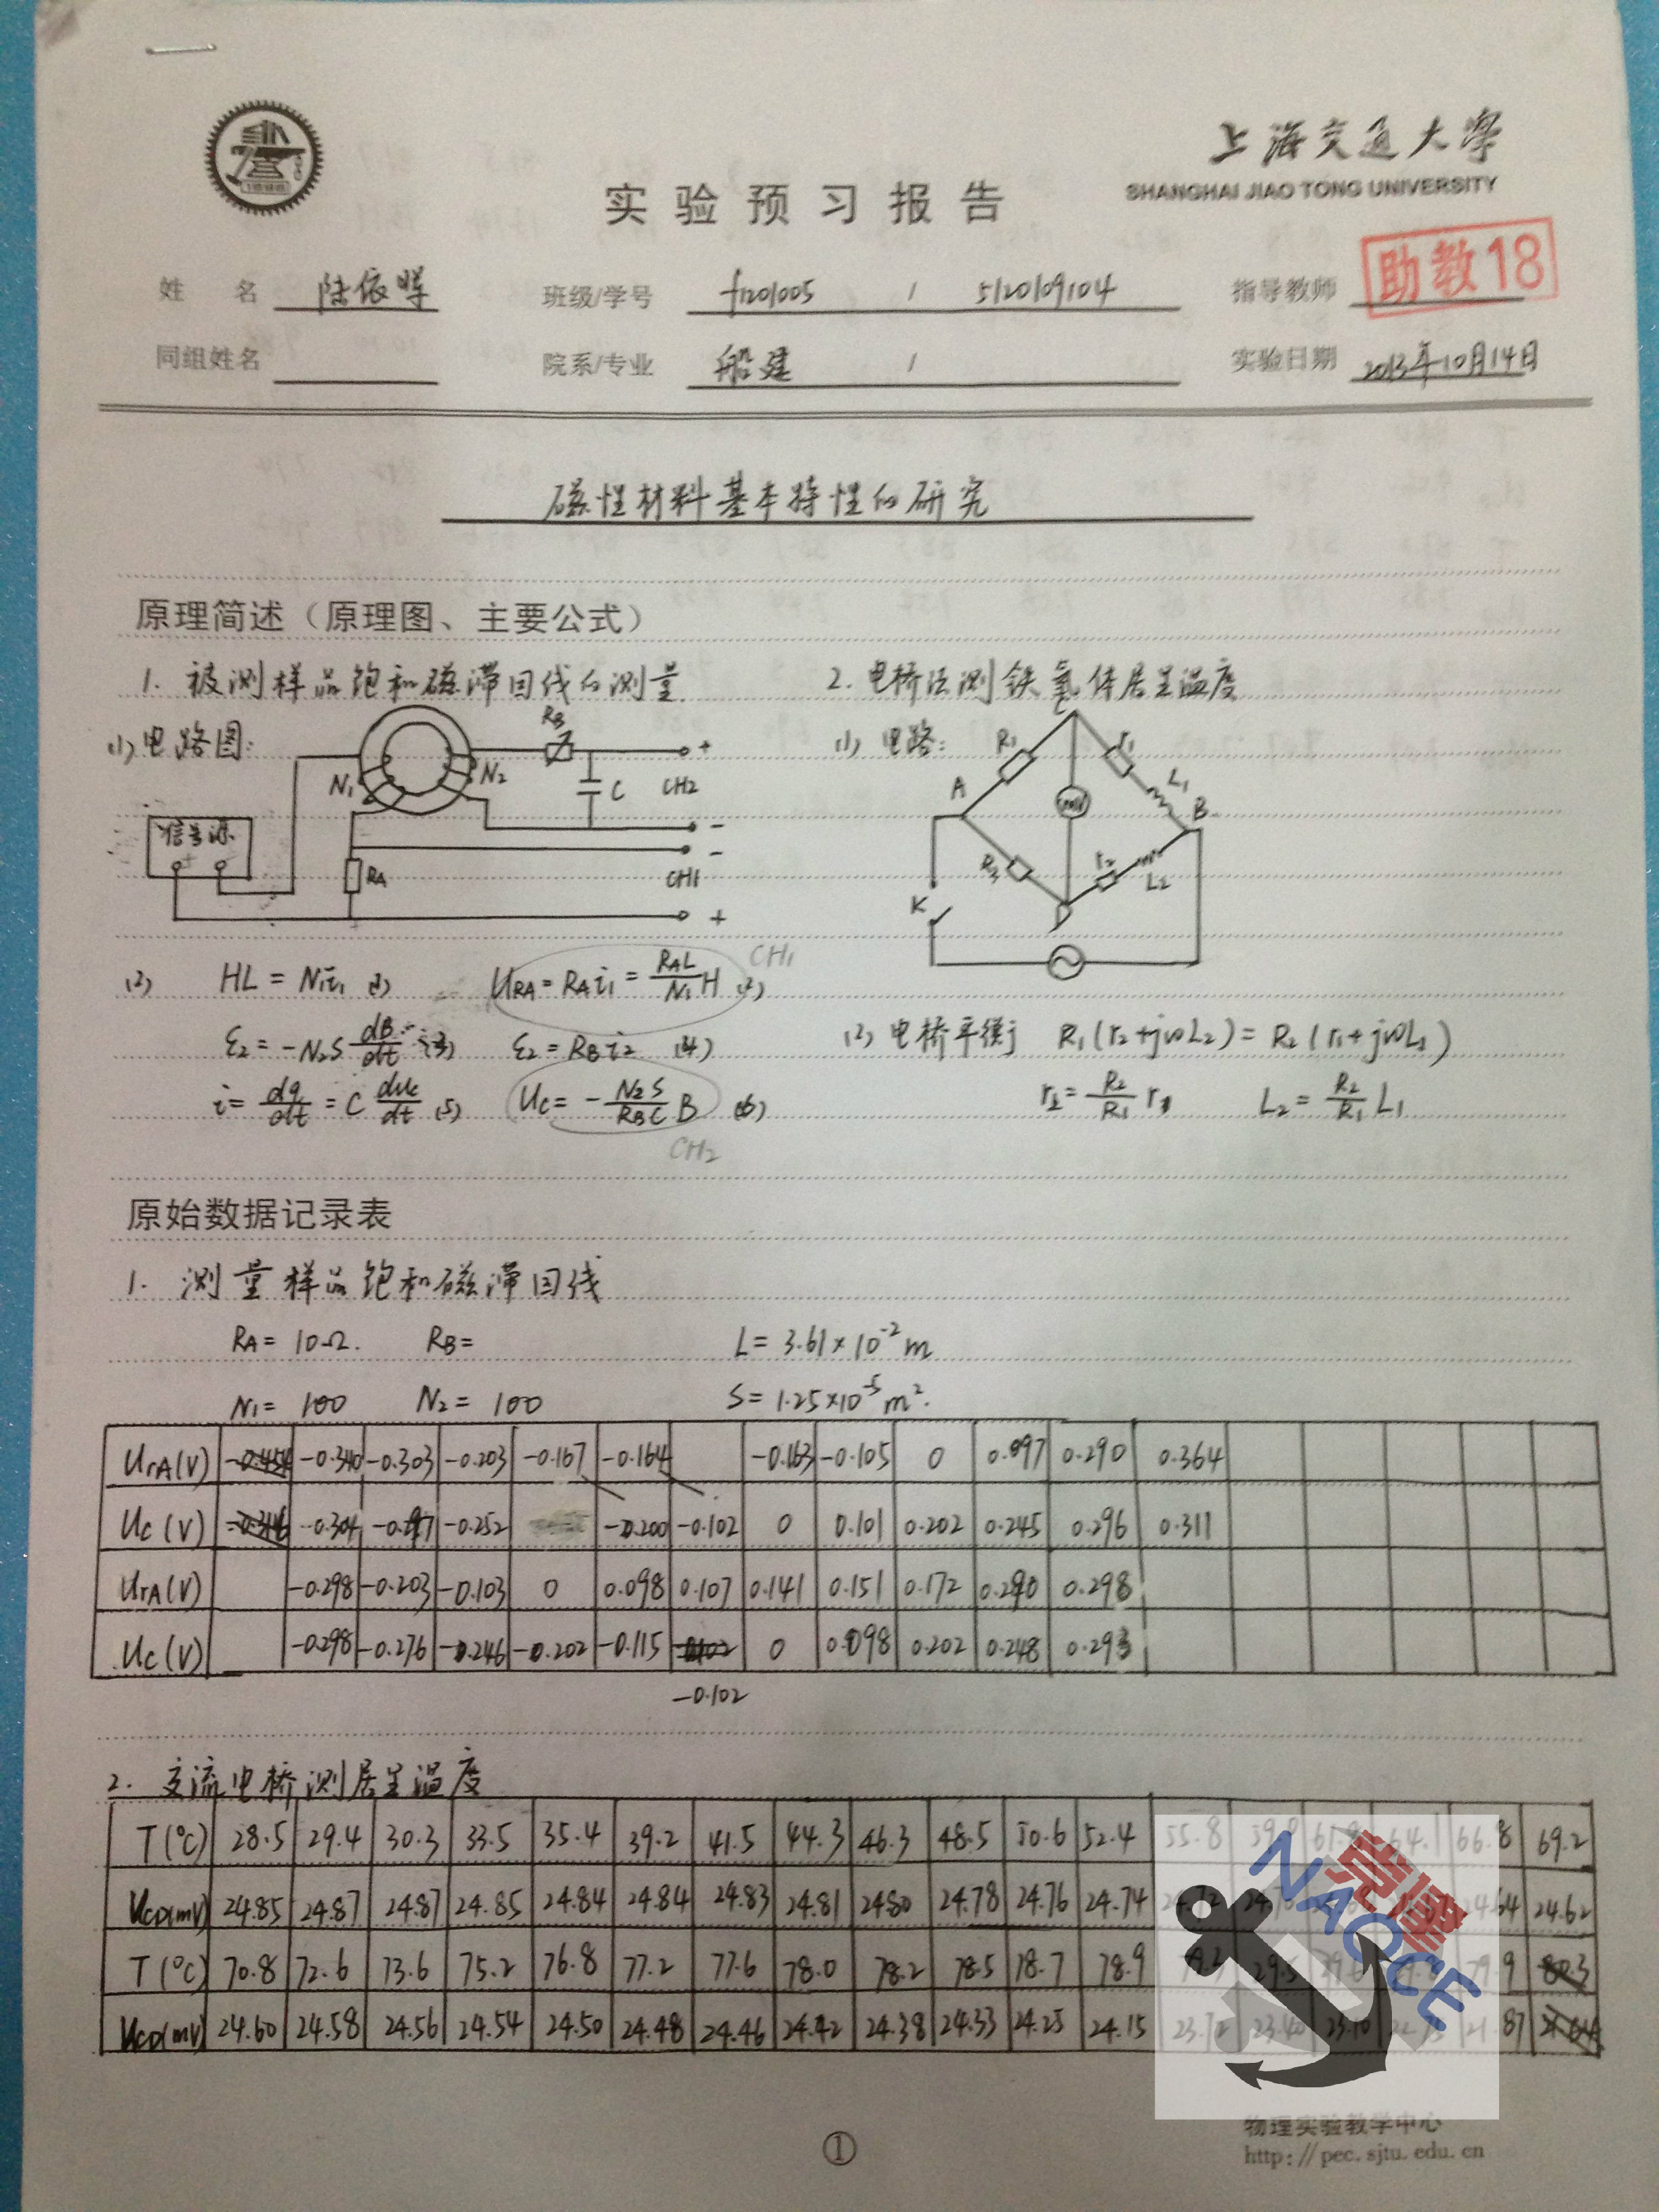 上海交通大学
SHANGHAI JIAO TONG UNIVERSITY
实验预习报告
助教18
姓 名 陆依晖 班级/学号 f1201005 / 5120109104 指导教师
同组姓名 院系/专业 船建 / 实验日期 2013年10月14日
磁性材料基本特性的研究
原理简述（原理图、主要公式）
1. 被测样品饱和磁滞回线的测量
2. 电桥法测铁氧体居里温度
(1) 电路图:
(1) 电路:
RB
N1
N2
C
CH2
+
-
-
信号源
RA
CH1
+
C
R1
r1
L1
A
mV
B
R2
r2
L2
K
D
(2) HL = N1i1 (1) URA = RAi1 = RAL/N1 H (2) CH1
ε2 = -N2S dB/dt (3) ε2 = RBi2 (4)
i = dq/dt = C duc/dt (5) Uc = - N2S/RBC B (6)
CH2
(2) 电桥平衡 R1(r2+jωL2) = R2(r1+jωL1)
r2 = R2/R1 r1 L2 = R2/R1 L1
原始数据记录表
1. 测量样品饱和磁滞回线
RA = 10Ω. RB= L = 3.61×10⁻² m
N1 = 100 N2 = 100 S = 1.25×10⁻⁵ m².
UrA(V) -0.454 -0.340 -0.303 -0.203 -0.167 -0.164 -0.163 -0.105 0 0.097 0.290 0.364
Uc(V) -0.304 -0.252 -0.200 -0.102 0 0.101 0.202 0.245 0.296 0.311
UrA(V) -0.298 -0.203 -0.103 0 0.098 0.107 0.141 0.151 0.172 0.290 0.298
Uc(V) -0.298 -0.276 -0.246 -0.202 -0.115 0 0.098 0.202 0.248 0.293
-0.102
2. 交流电桥测居里温度
T(℃) 28.5 29.4 30.3 33.5 35.4 39.2 41.5 44.3 46.3 48.5 50.6 52.4 55.8 64.1 66.8 69.2
UCD(mV) 24.85 24.87 24.87 24.85 24.84 24.84 24.83 24.81 24.80 24.78 24.76 24.74 24.64 24.62
T(℃) 70.8 72.6 73.6 75.2 76.8 77.2 77.6 78.0 78.2 78.5 78.7 78.9 79.9 80.3
UCD(mV) 24.60 24.58 24.56 24.54 24.50 24.48 24.46 24.42 24.38 24.33 24.25 24.15 23.72 23.40 23.10 21.87
NAOCE
①
物理实验教学中心
http://pec.sjtu.edu.cn